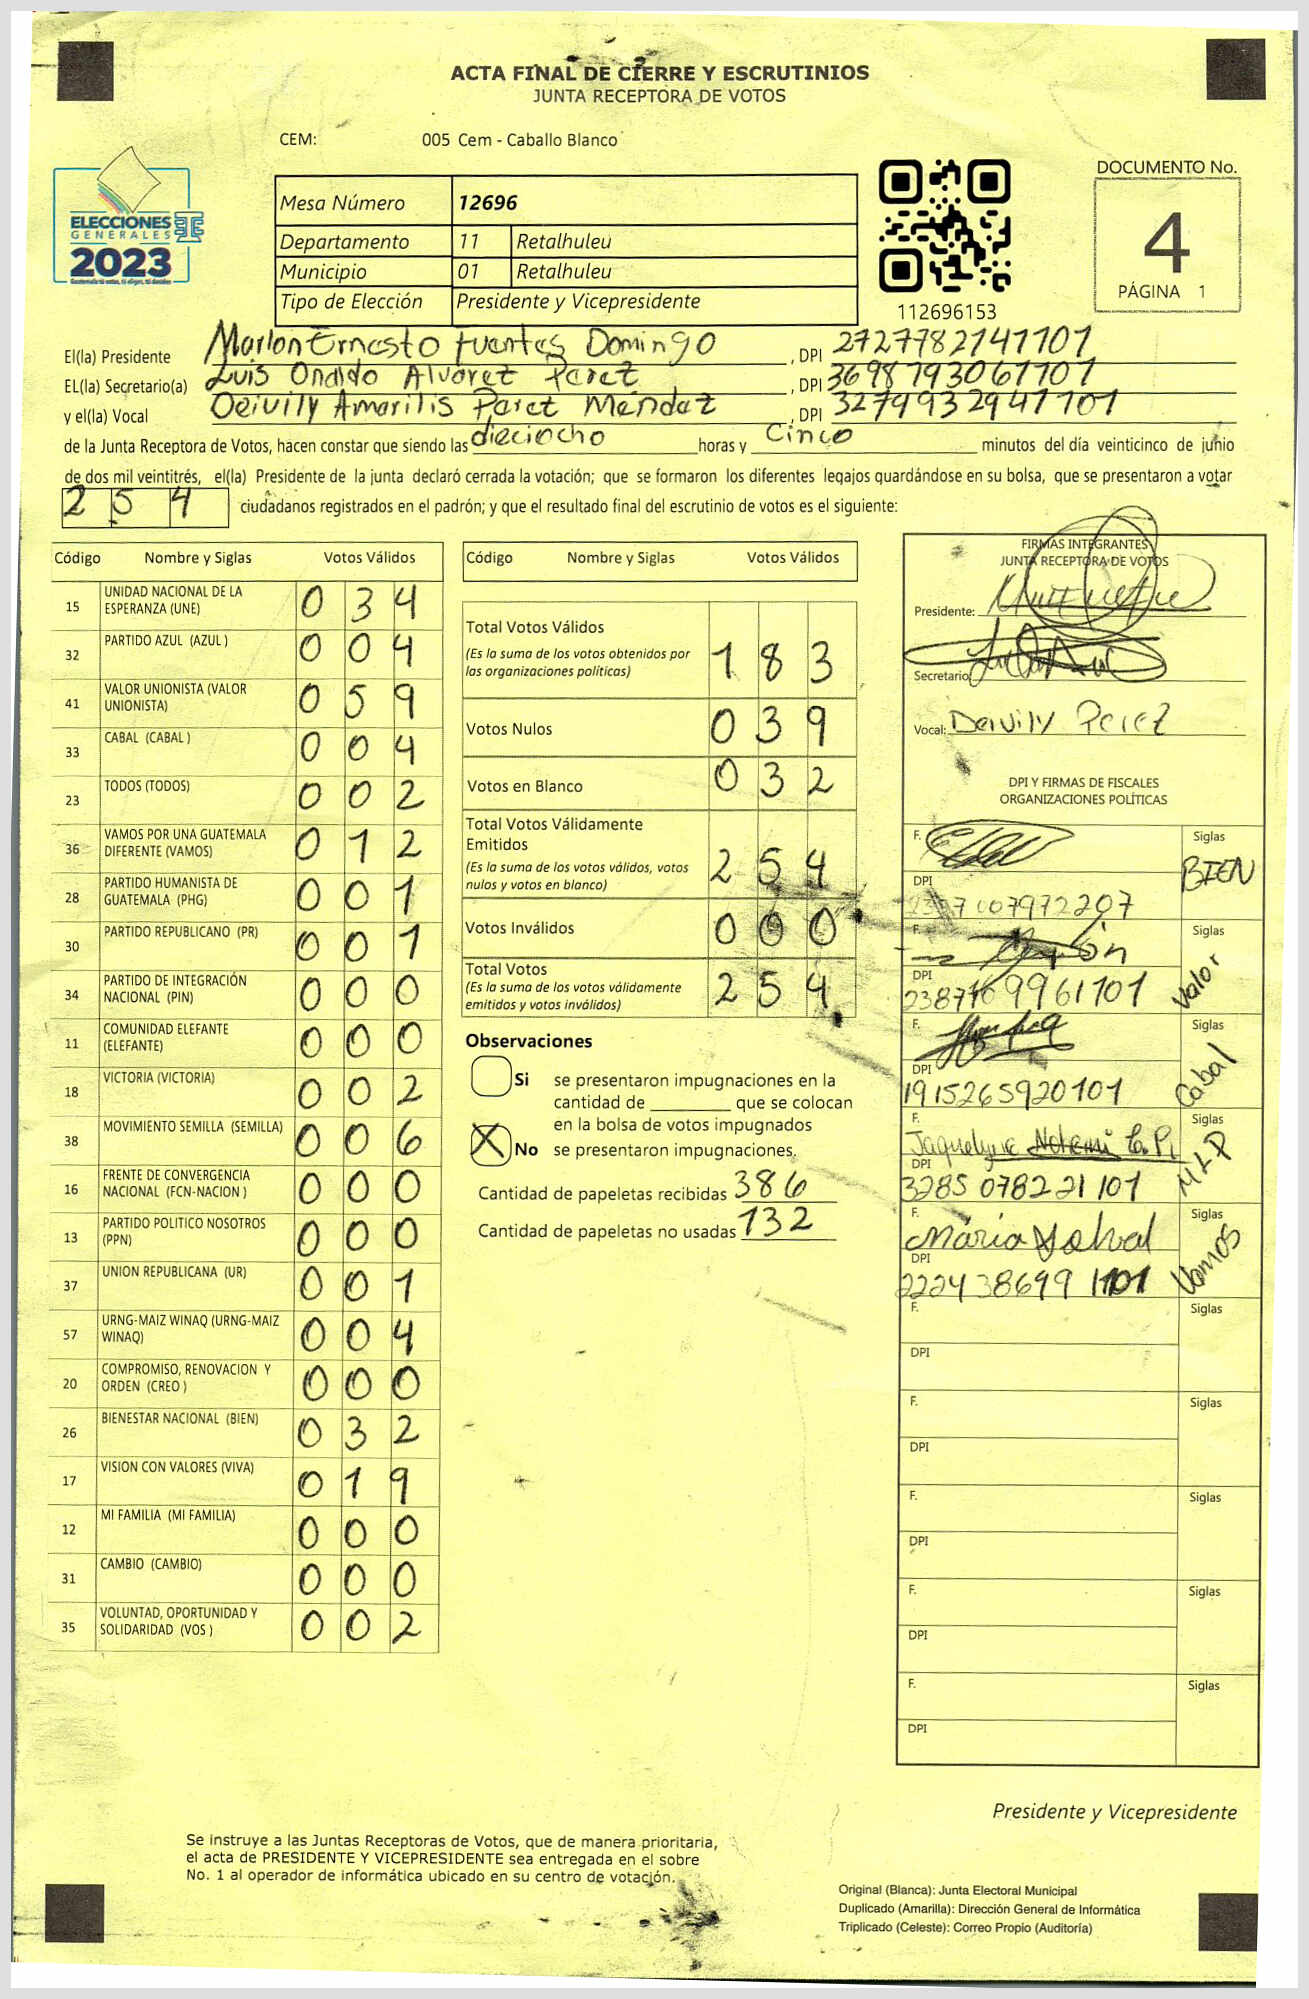 ACTA FINAL DE CIERRE Y ESCRUTINIOS
JUNTA RECEPTORA DE VOTOS
CEM: 005 Cem - Caballo Blanco
ELECCIONES
GENERALES
2023
Mesa Número 12696
Departamento 11 Retalhuleu
Municipio 01 Retalhuleu
Tipo de Elección Presidente y Vicepresidente
112696153
DOCUMENTO No.
4
PÁGINA 1
El(la) Presidente Marlon Ernesto Fuentes Domingo , DPI 2727782141101
EL(la) Secretario(a) Luis Ondido Alvarez Perez , DPI 3698793061101
y el(la) Vocal Deivily Amarilis Perez Méndez , DPI 3279932941101
de la Junta Receptora de Votos, hacen constar que siendo las dieciocho horas y Cinco minutos del día veinticinco de junio
de dos mil veintitrés, el(la) Presidente de la junta declaró cerrada la votación; que se formaron los diferentes legajos guardándose en su bolsa, que se presentaron a votar
2 5 4 ciudadanos registrados en el padrón; y que el resultado final del escrutinio de votos es el siguiente:
Código Nombre y Siglas Votos Válidos
15 UNIDAD NACIONAL DE LA ESPERANZA (UNE) 0 3 4
32 PARTIDO AZUL (AZUL ) 0 0 4
41 VALOR UNIONISTA (VALOR UNIONISTA) 0 5 9
33 CABAL (CABAL ) 0 0 4
23 TODOS (TODOS) 0 0 2
36 VAMOS POR UNA GUATEMALA DIFERENTE (VAMOS) 0 1 2
28 PARTIDO HUMANISTA DE GUATEMALA (PHG) 0 0 1
30 PARTIDO REPUBLICANO (PR) 0 0 1
34 PARTIDO DE INTEGRACIÓN NACIONAL (PIN) 0 0 0
11 COMUNIDAD ELEFANTE (ELEFANTE) 0 0 0
18 VICTORIA (VICTORIA) 0 0 2
38 MOVIMIENTO SEMILLA (SEMILLA) 0 0 6
16 FRENTE DE CONVERGENCIA NACIONAL (FCN-NACION ) 0 0 0
13 PARTIDO POLITICO NOSOTROS (PPN) 0 0 0
37 UNION REPUBLICANA (UR) 0 0 1
57 URNG-MAIZ WINAQ (URNG-MAIZ WINAQ) 0 0 4
20 COMPROMISO, RENOVACION Y ORDEN (CREO ) 0 0 0
26 BIENESTAR NACIONAL (BIEN) 0 3 2
17 VISION CON VALORES (VIVA) 0 1 9
12 MI FAMILIA (MI FAMILIA) 0 0 0
31 CAMBIO (CAMBIO) 0 0 0
35 VOLUNTAD, OPORTUNIDAD Y SOLIDARIDAD (VOS ) 0 0 2
Código Nombre y Siglas Votos Válidos
Total Votos Válidos
(Es la suma de los votos obtenidos por las organizaciones políticas) 1 8 3
Votos Nulos 0 3 9
Votos en Blanco 0 3 2
Total Votos Válidamente Emitidos
(Es la suma de los votos válidos, votos nulos y votos en blanco) 2 5 4
Votos Inválidos 0 0 0
Total Votos
(Es la suma de los votos válidamente emitidos y votos inválidos) 2 5 4
Observaciones
Si se presentaron impugnaciones en la
cantidad de ________ que se colocan
en la bolsa de votos impugnados
X No se presentaron impugnaciones.
Cantidad de papeletas recibidas 386
Cantidad de papeletas no usadas 132
FIRMAS INTEGRANTES
JUNTA RECEPTORA DE VOTOS
Presidente:
Secretario
Vocal: Deivily Perez
DPI Y FIRMAS DE FISCALES
ORGANIZACIONES POLÍTICAS
F. Siglas BIEN
DPI
F. Siglas Valor
DPI
F. Siglas Cabal
DPI 1915265920101
F. Jaquelyne Siglas MLP
DPI 3285 07822 1 101
F. Maria Siglas Vamos
DPI 2224 38699 1101
F. Siglas
DPI
F. Siglas
DPI
F. Siglas
DPI
F. Siglas
DPI
F. Siglas
DPI
Presidente y Vicepresidente
Se instruye a las Juntas Receptoras de Votos, que de manera prioritaria,
el acta de PRESIDENTE Y VICEPRESIDENTE sea entregada en el sobre
No. 1 al operador de informática ubicado en su centro de votación.
Original (Blanca): Junta Electoral Municipal
Duplicado (Amarilla): Dirección General de Informática
Triplicado (Celeste): Correo Propio (Auditoría)